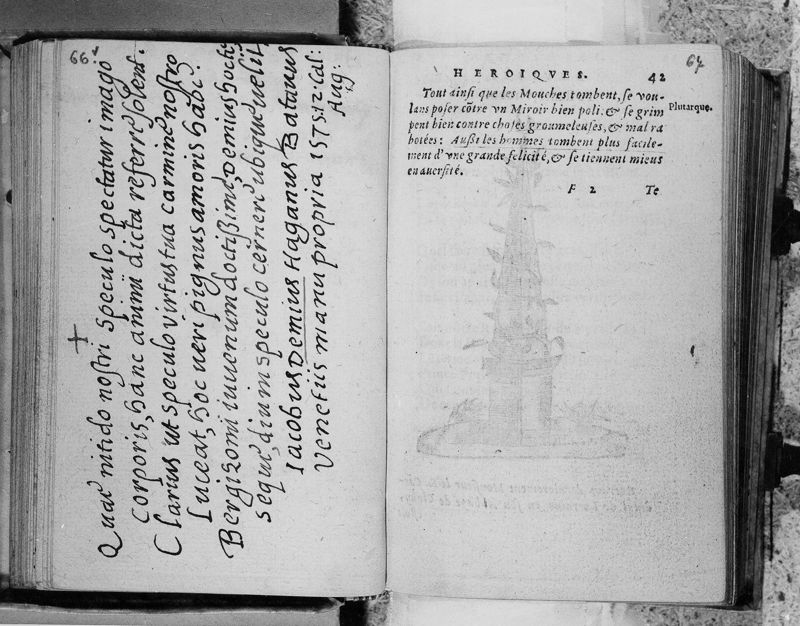 66.v
+
Quae nitido nostri speculo spectatur imago
Corporis, hanc animi dicta referre solent.
Clarius ut speculo virtus tua carmine nostro
Luceat, hoc veri pignus amoris habe.
Bergizomi iuvenum doctissime, Demius hoc te
sequitur, dium speculo cernere ubique velit
Iacobus Demius Haganus Batavus
Venetiis manu propria 1575. 12. Cal:
Aug:
67
HEROIQVES. 42
Tout ainsi que les Mouches tombent, se vou-
lans poser cõtre vn Miroir bien poli: & se grim
pent bien contre choses groumeleuses, & mal ra
botées: Aussi les hommes tombent plus facile-
ment d'vne grande felicité, & se tiennent mieus
en auersité.
Plutarque.
F 2 Te